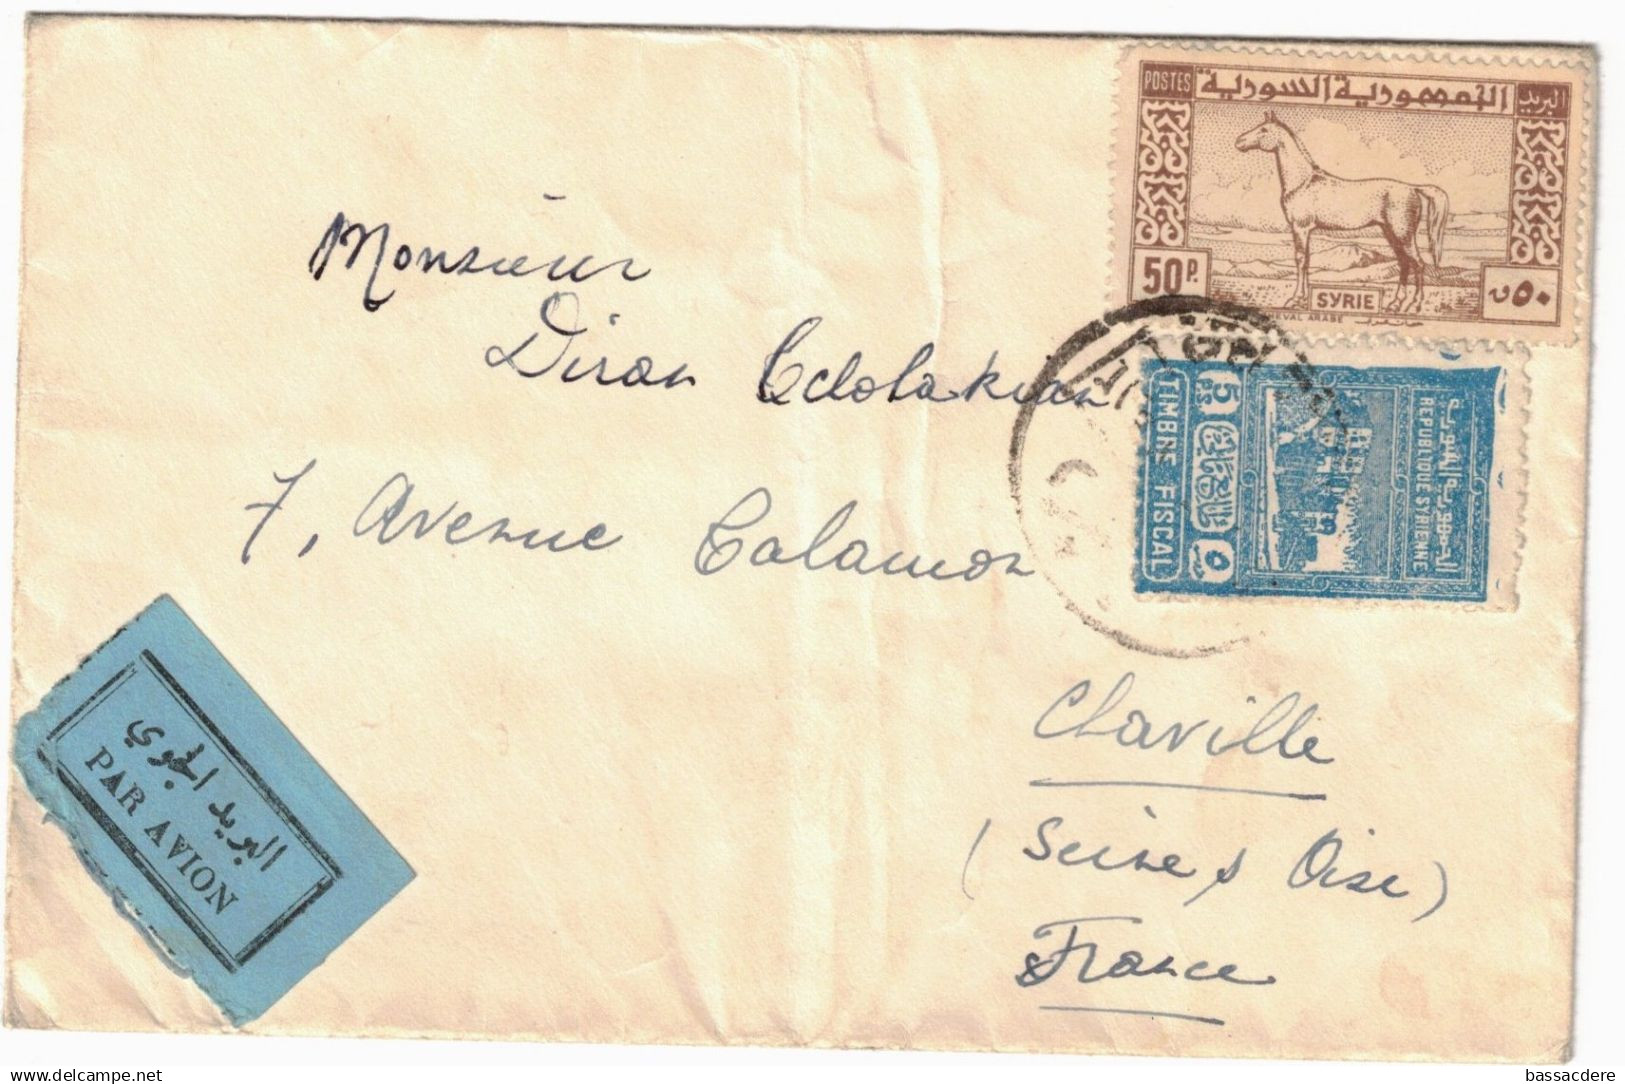 POSTES الجمهورية السورية البريد
50 P. SYRIE ٥٠ ق
CHEVAL ARABE
الجمهورية السورية
REPUBLIQUE SYRIENNE
5 PS ٥
TIMBRE FISCAL
Monsieur
Diran Edolakian
7, Avenue Calamon
Chaville
(Seine & Oise)
France
البريد الجوي
PAR AVION
delcampe.net
bassacdere